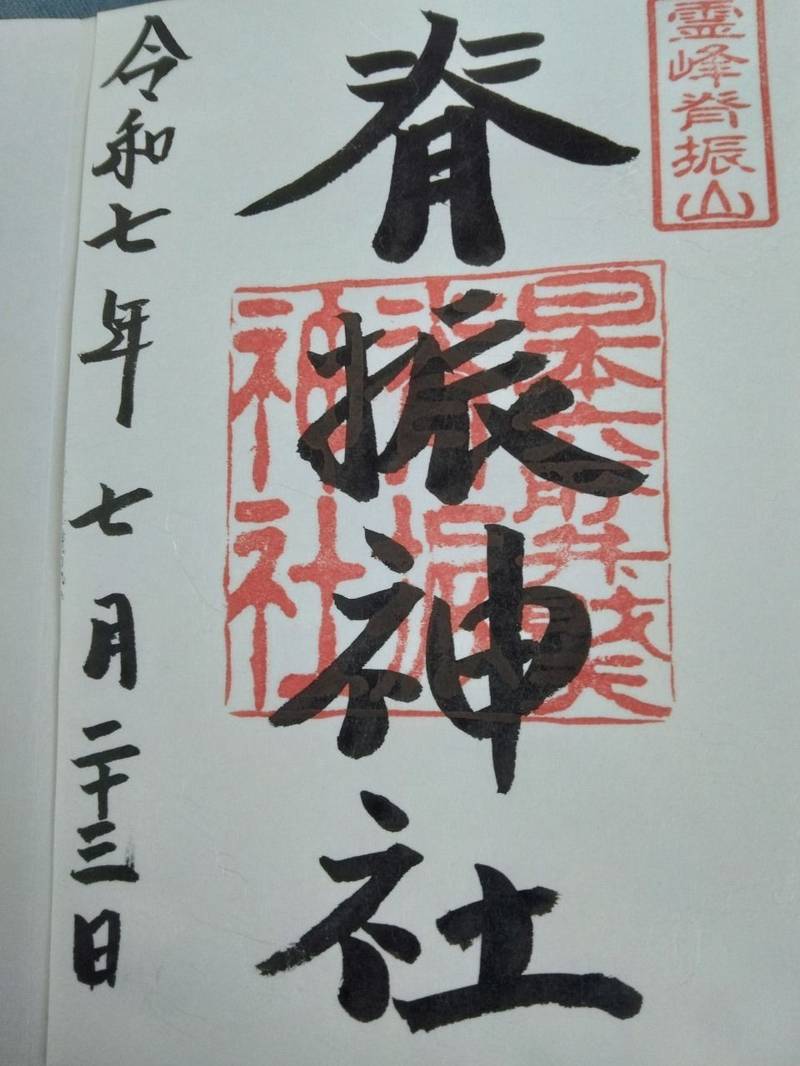 霊峰脊振山
脊振神社
日本六所弁財天
脊振
神社
令和七年七月二十三日